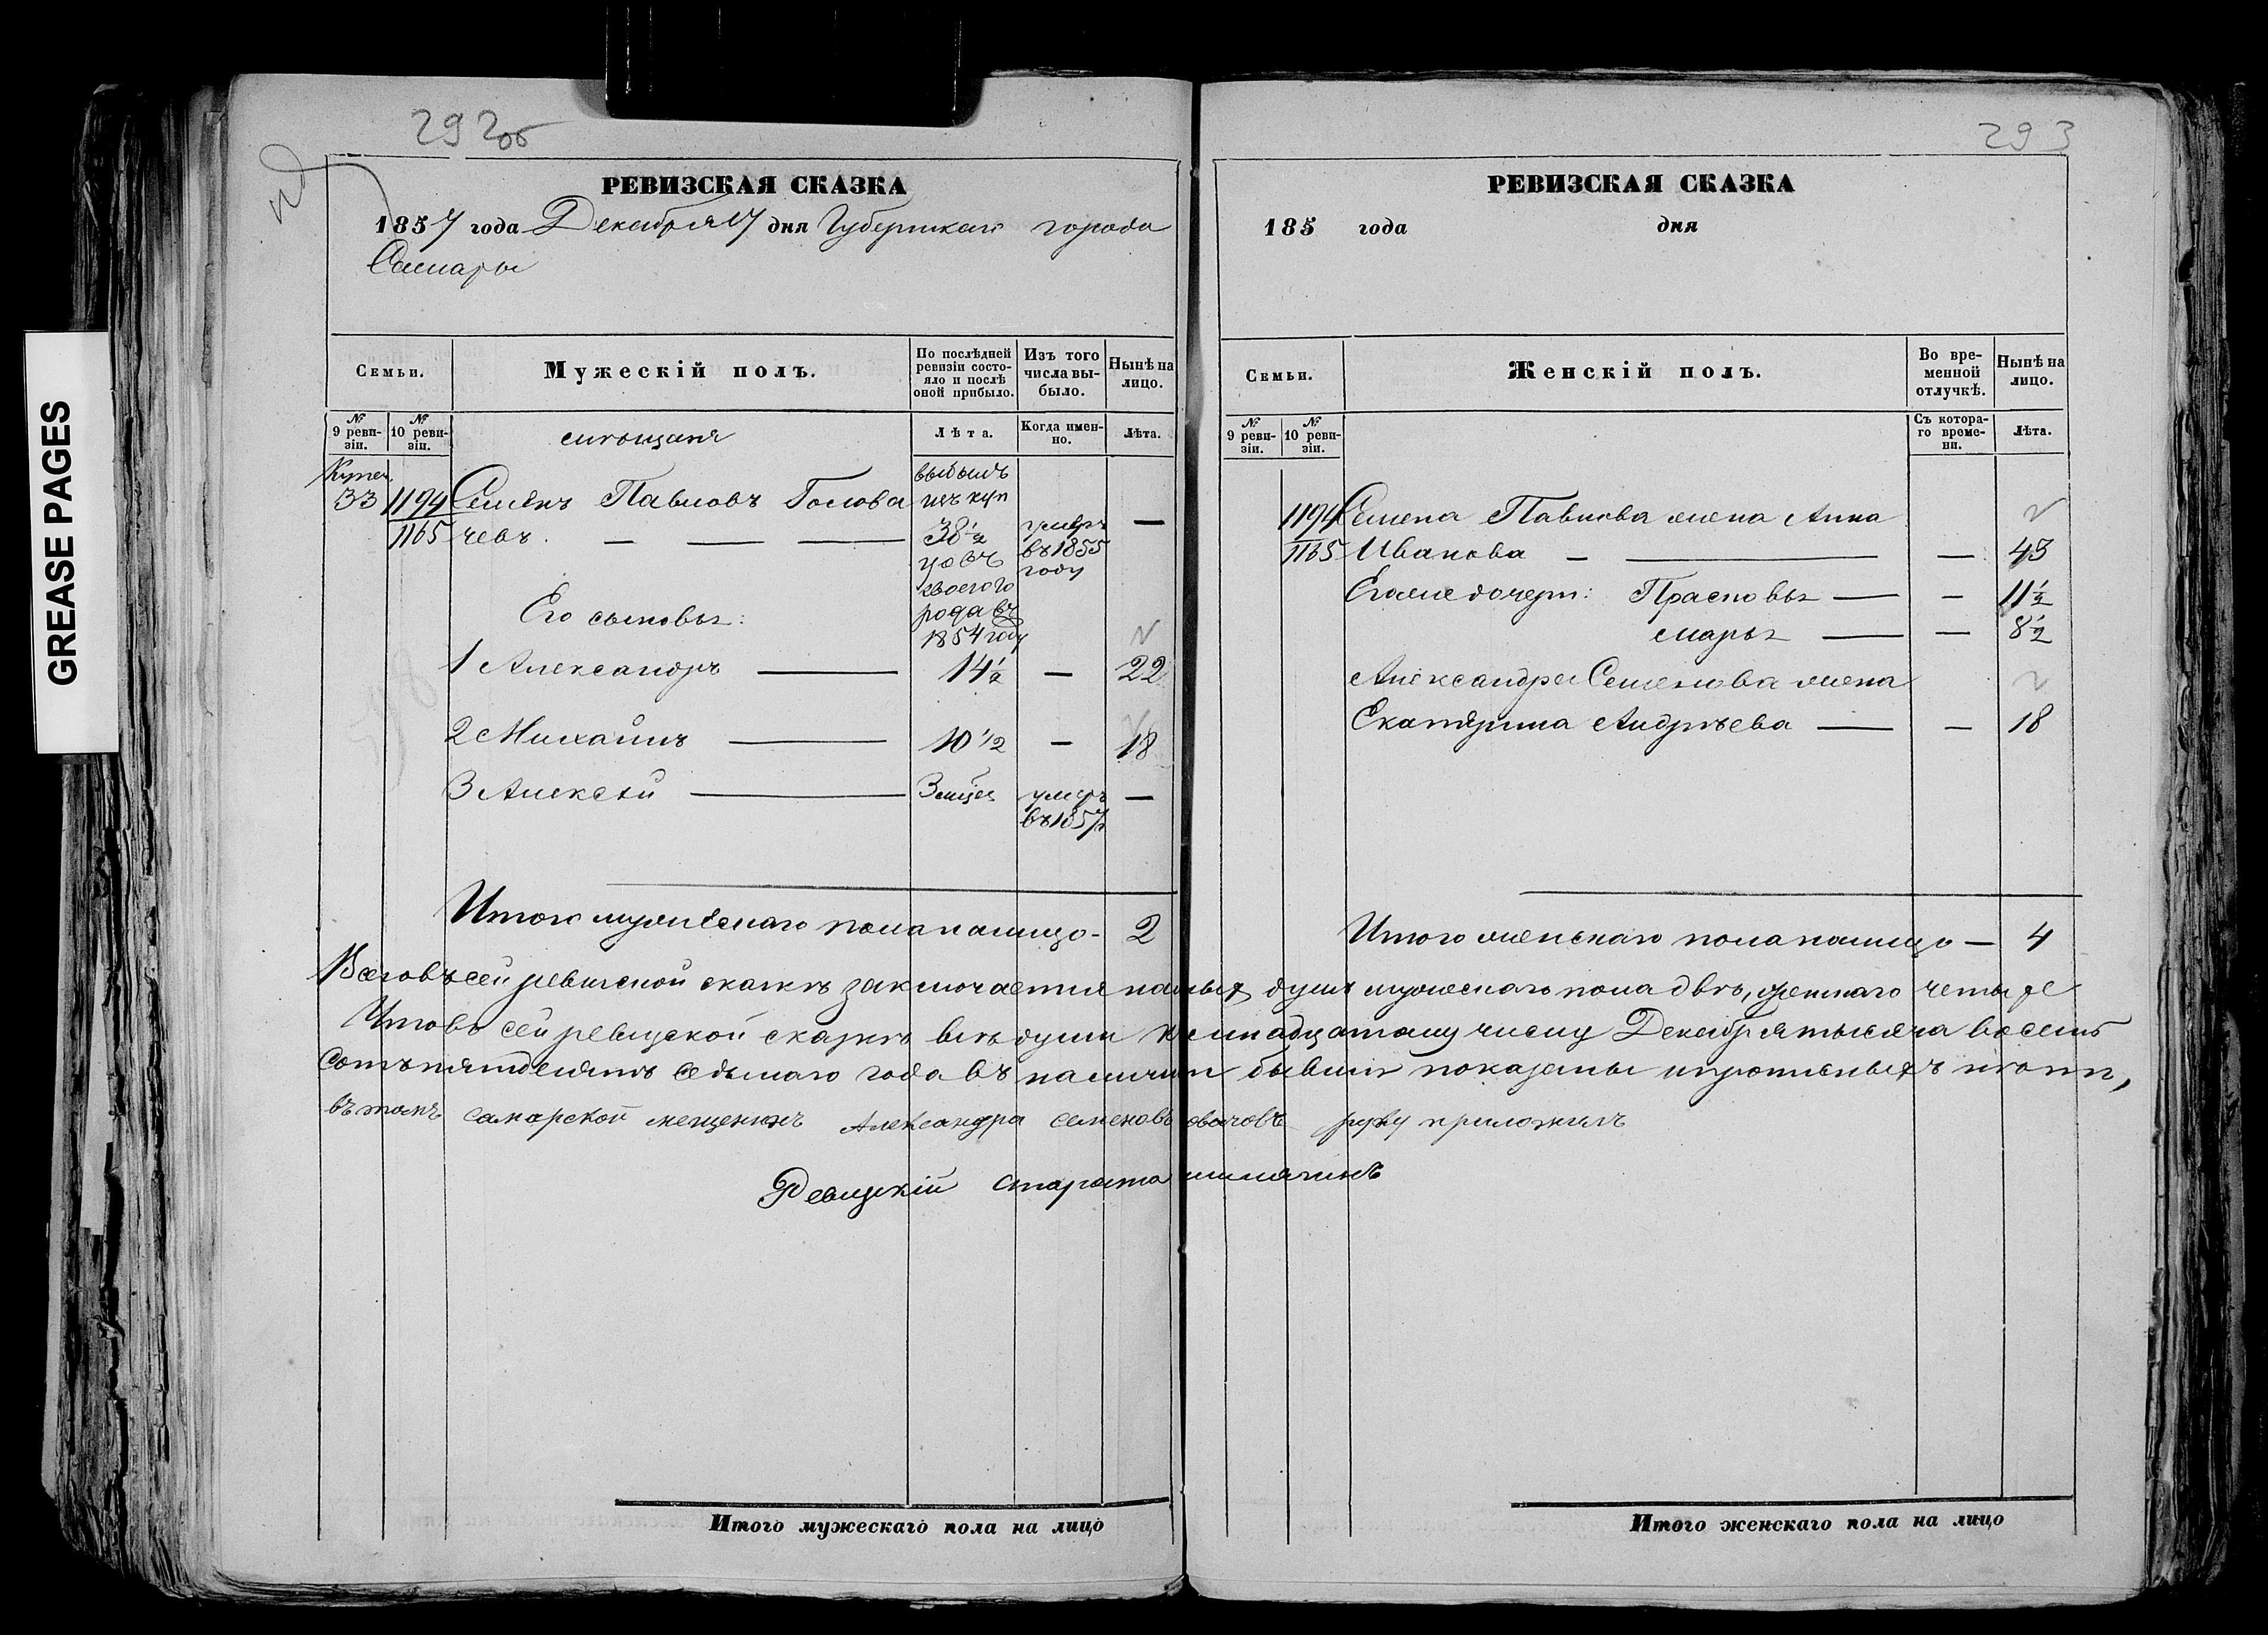 GREASE PAGES
292об
РЕВИЗСКАЯ СКАЗКА
1857 года Декабря 17 дня Губернскаго города
Самары
Семьи.
Мужескій полъ.
По послѣдней ревизіи состояло и послѣ оной прибыло.
Изъ того числа выбыло.
Нынѣ на лицо.
№ 9 ревизіи.
№ 10 ревизіи.
мѣщане
Лѣта.
Когда именно.
Лѣта.
Купеч.
33
1194
1165
Семенъ Павловъ Голова
чевъ.
выбылъ
изъ куп
38 1/2
цовъ
2воего
рода въ
1854 году
умеръ
въ 1855
году
—
Его сыновья:
1 Александръ — 14 1/2 — 22
2 Михаилъ — 10 1/2 — 18
3 Алексѣй — 3 мѣсе умеръ —
въ 1857 г
Итого мужескаго пола налицо - 2
293
РЕВИЗСКАЯ СКАЗКА
185 года дня
Семьи.
Женскій полъ.
Во временной отлучкѣ.
Нынѣ на лицо.
№ 9 ревизіи.
№ 10 ревизіи.
Съ котораго времени.
Лѣта.
1194 Семена Павлова жена Анна
1165 Иванова — — 43
Его же дочери: Прасковья — — 11 1/2
Марья — — 8 1/2
Александра Семенова жена
Екатерина Андрѣева — — 18
Итого женскаго пола налицо — 4
Всего въ сей ревизской сказкѣ заключается наличныхъ душъ мужескаго пола двѣ, женскаго четыре
Что въ сей ревизской сказкѣ всѣ души къ семнадцатому числу Декабря тысяча восемь
сотъ пятдесятъ седьмаго года въ наличіи бывши показаны и прописныхъ нѣтъ,
въ томъ самарской мещенинъ Александра Семеновъ руку приложилъ
Ревизскій староста
Итого мужескаго пола на лицо
Итого женскаго пола на лицо